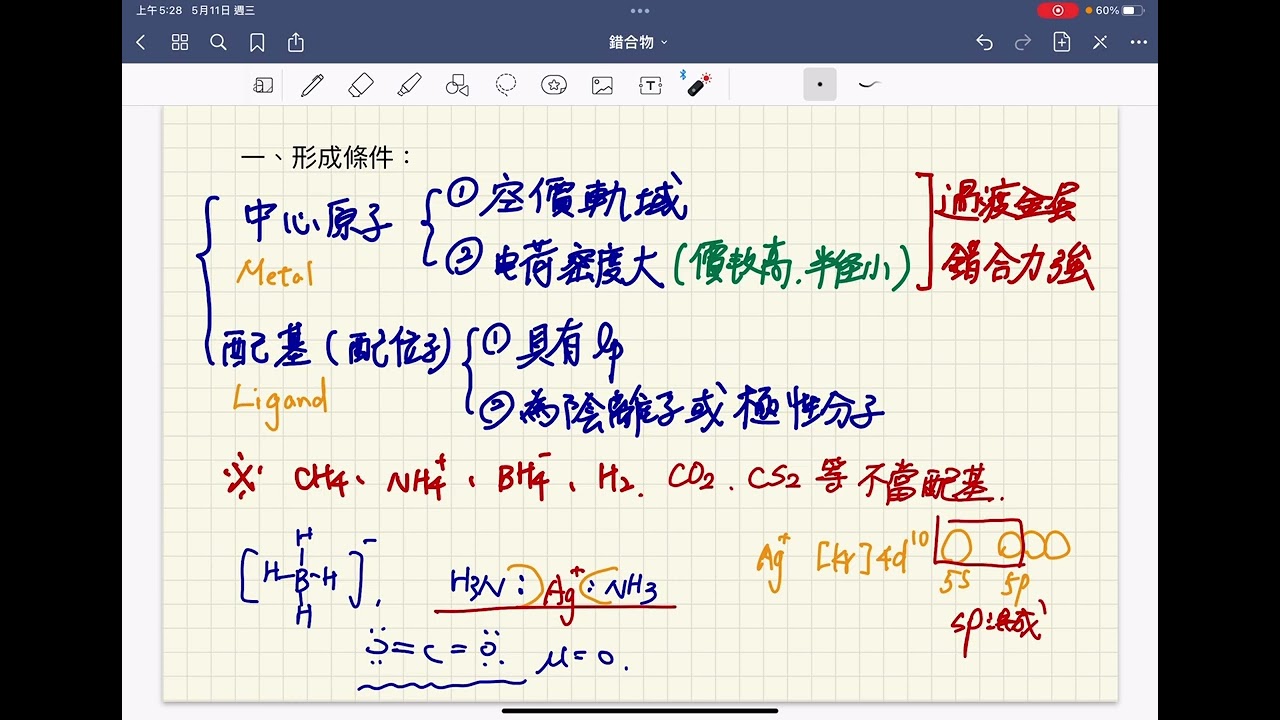 上午5:28 5月11日 週三
60%
錯合物
一、形成條件：
中心原子
Metal
① 空價軌域
② 电荷密度大 (價數高、半徑小)
過渡金屬
錯合力強
配基 (配位子)
Ligand
① 具有 lp
② 為陰離子或極性分子
※ CH4、NH4+、BH4-、H2、CO2、CS2 等不當配基.
[H H-B-H H]-
H3N: Ag+ :NH3
Ag+ [Kr]4d10
5s 5p
sp混成
:Ö=C=Ö: μ=0.